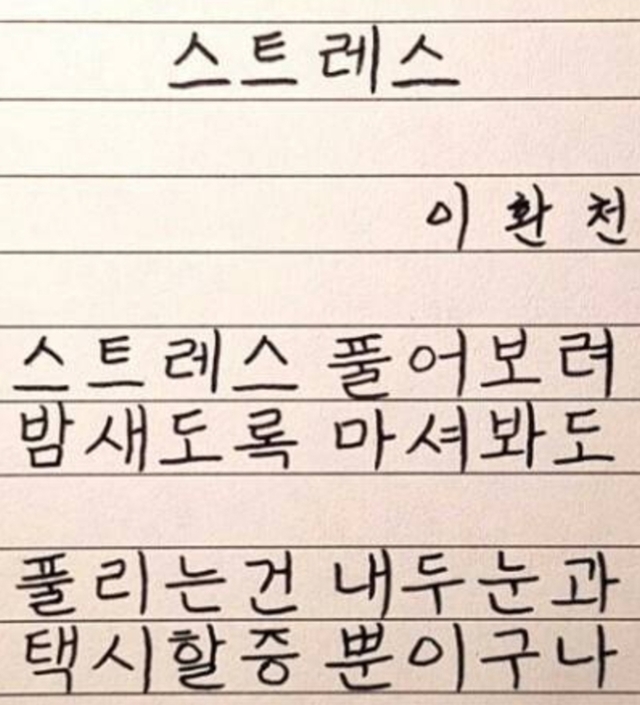 스트레스
이환천
스트레스 풀어보려
밤새도록 마셔봐도
풀리는건 내두눈과
택시할증 뿐이구나